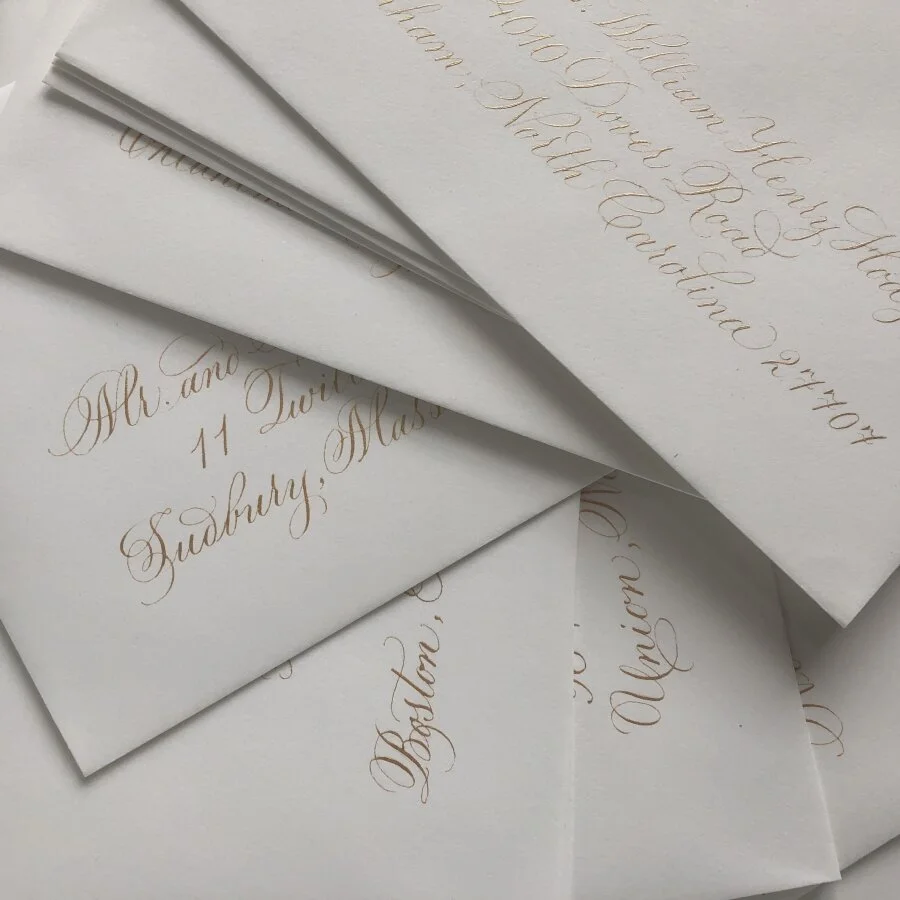 William Henry
4010 Dover Road
North Carolina 27707
Mr. and
11
Sudbury, Mass
Boston,
Union,